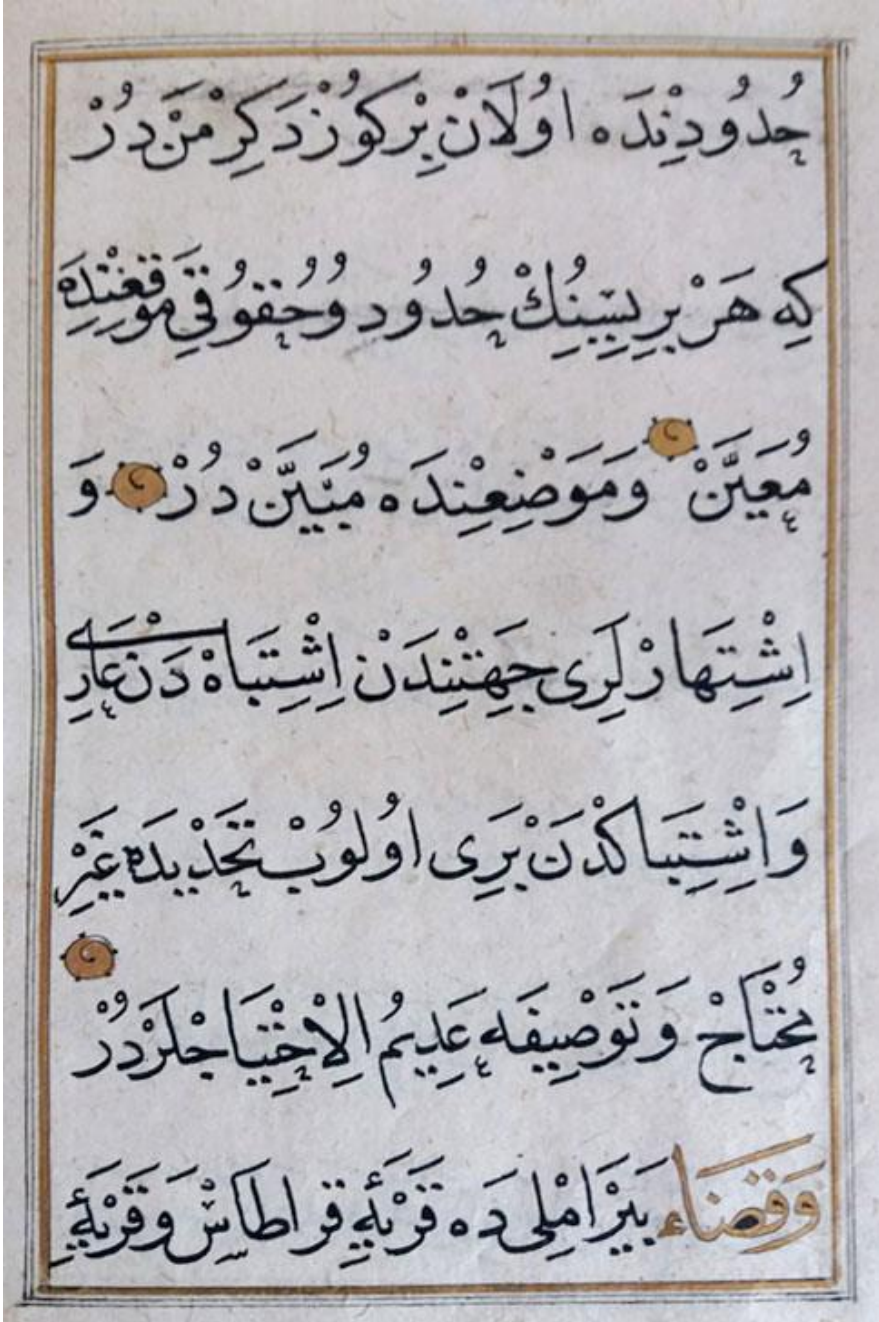 حُدُودِنْدَه اوُلَانْ بِرْ كوُزْ دَكِرْمَنْ دُرْ
كِه هَرْ بِرِيسِينُكْ حُدُود وُحُقوُقِي مَوْقِعِنْدَه
مُعَيَّنْ وَمَوَضِعِنْدَه مُبَيَّنْ دُرْ وَ
اِشْتِهَارْلَرِى جِهَتِنْدَنْ اِشْتِبَاهْ دَنْ عَارِى
وَاِشْتِبَاكدْنَ بَرِى اوُلوُبْ تَحْدِيدَه غَيْرِ
مُحْتَاجْ وَتَوْصِيفَه عَدِيمُ الِاحْتِيَاجْلَرْدُرْ
وَقَضَاءِ بَيْرَامْلِى دَه قَرْيَۀِ قراطَاسْ وَقَرْيَۀِ